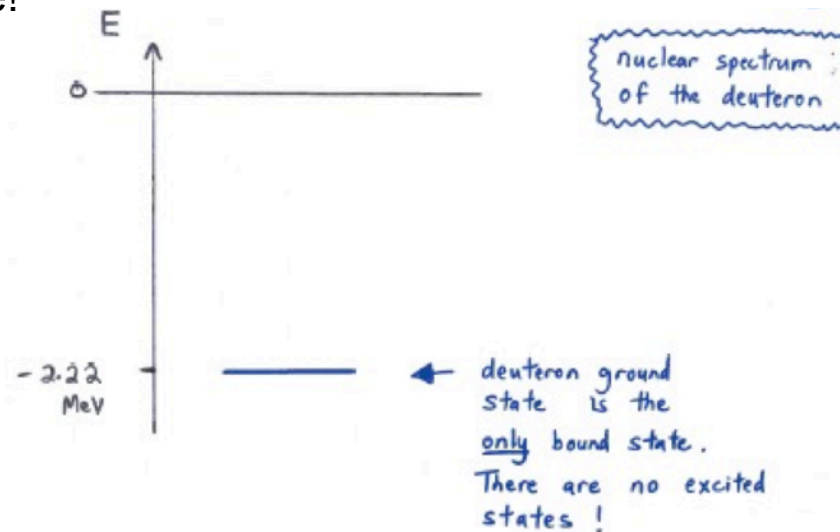 E
0
nuclear spectrum
of the deuteron
- 2.22
MeV
deuteron ground
state is the
only bound state.
There are no excited
states !